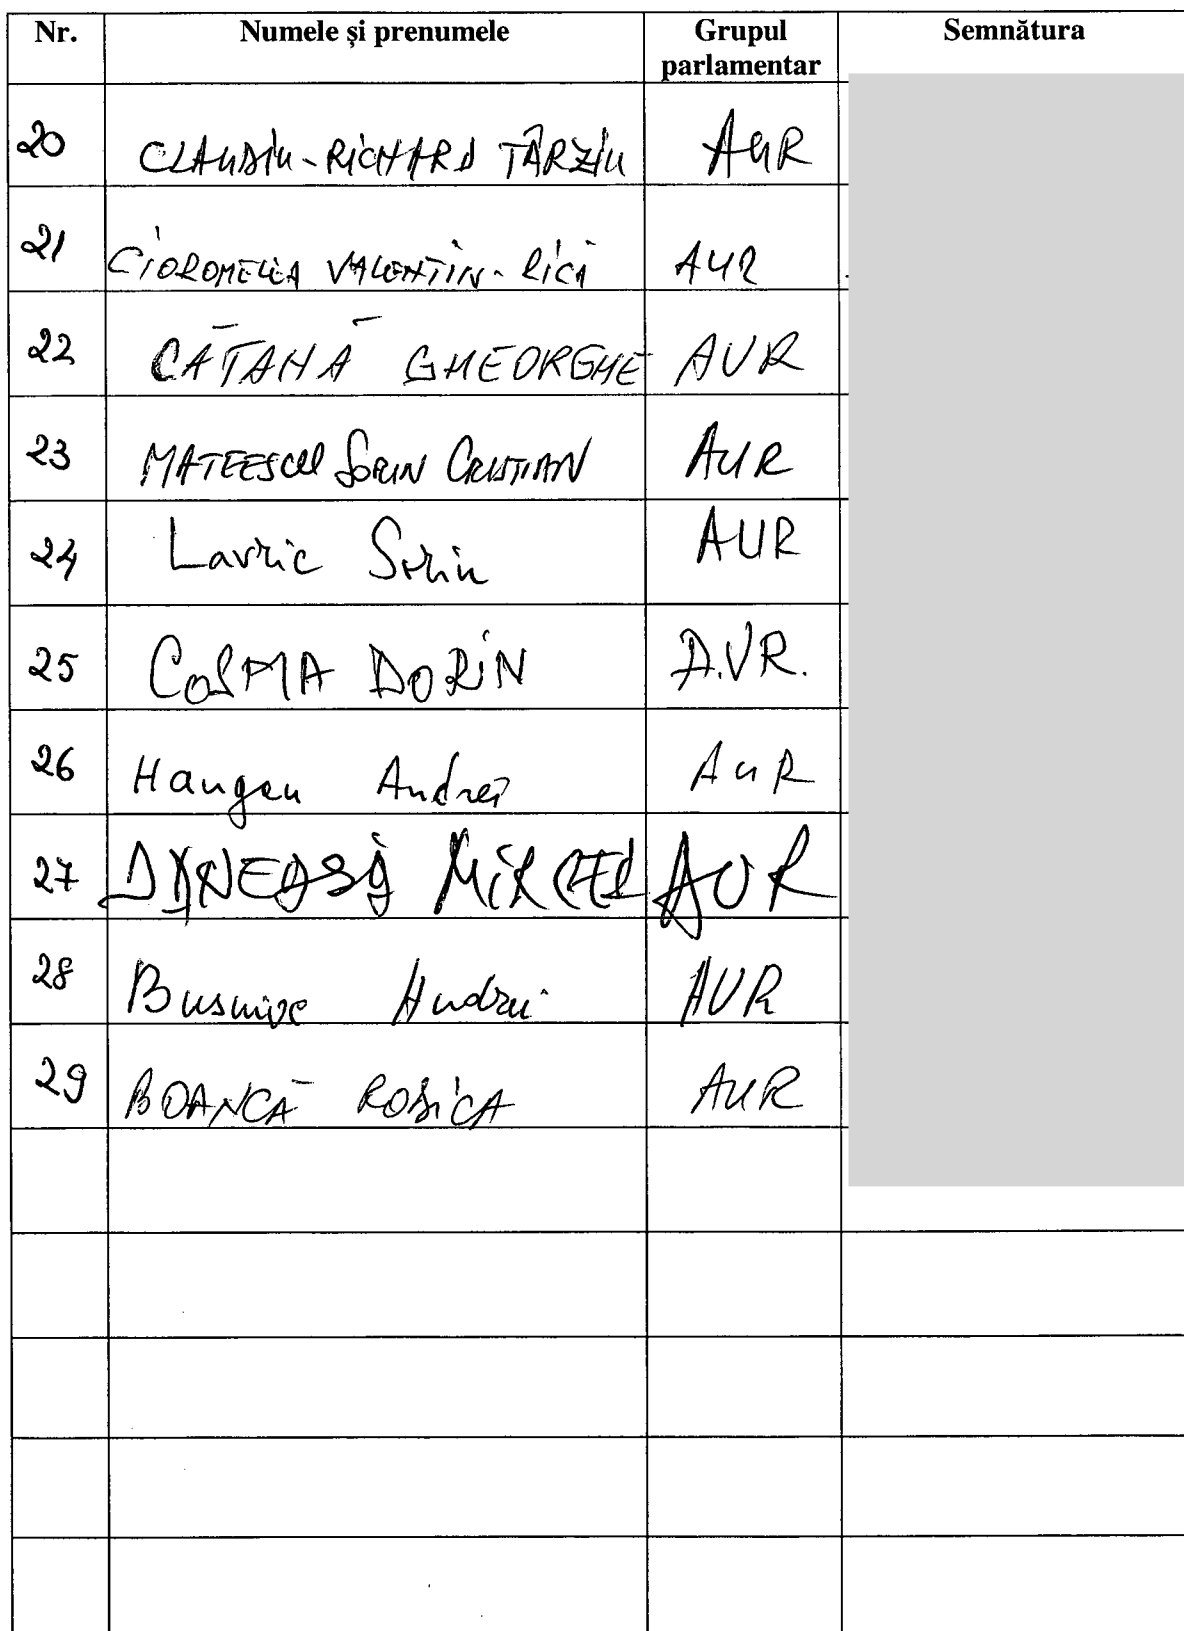 Nr. Numele și prenumele Grupul parlamentar Semnătura
20 CLAUDIU-RICHARD TÂRZIU AUR
21 CIOROMELEA VALENTIN-RICĂ AUR
22 CĂTANĂ GHEORGHE AUR
23 MATEESCU SORIN CRISTIAN AUR
24 Lavric Sorin AUR
25 COSMA DORIN A.U.R.
26 Hangan Andrei AUR
27 MIRCEA AUR
28 Busuioc Andrei AUR
29 BOANCĂ RODICA AUR